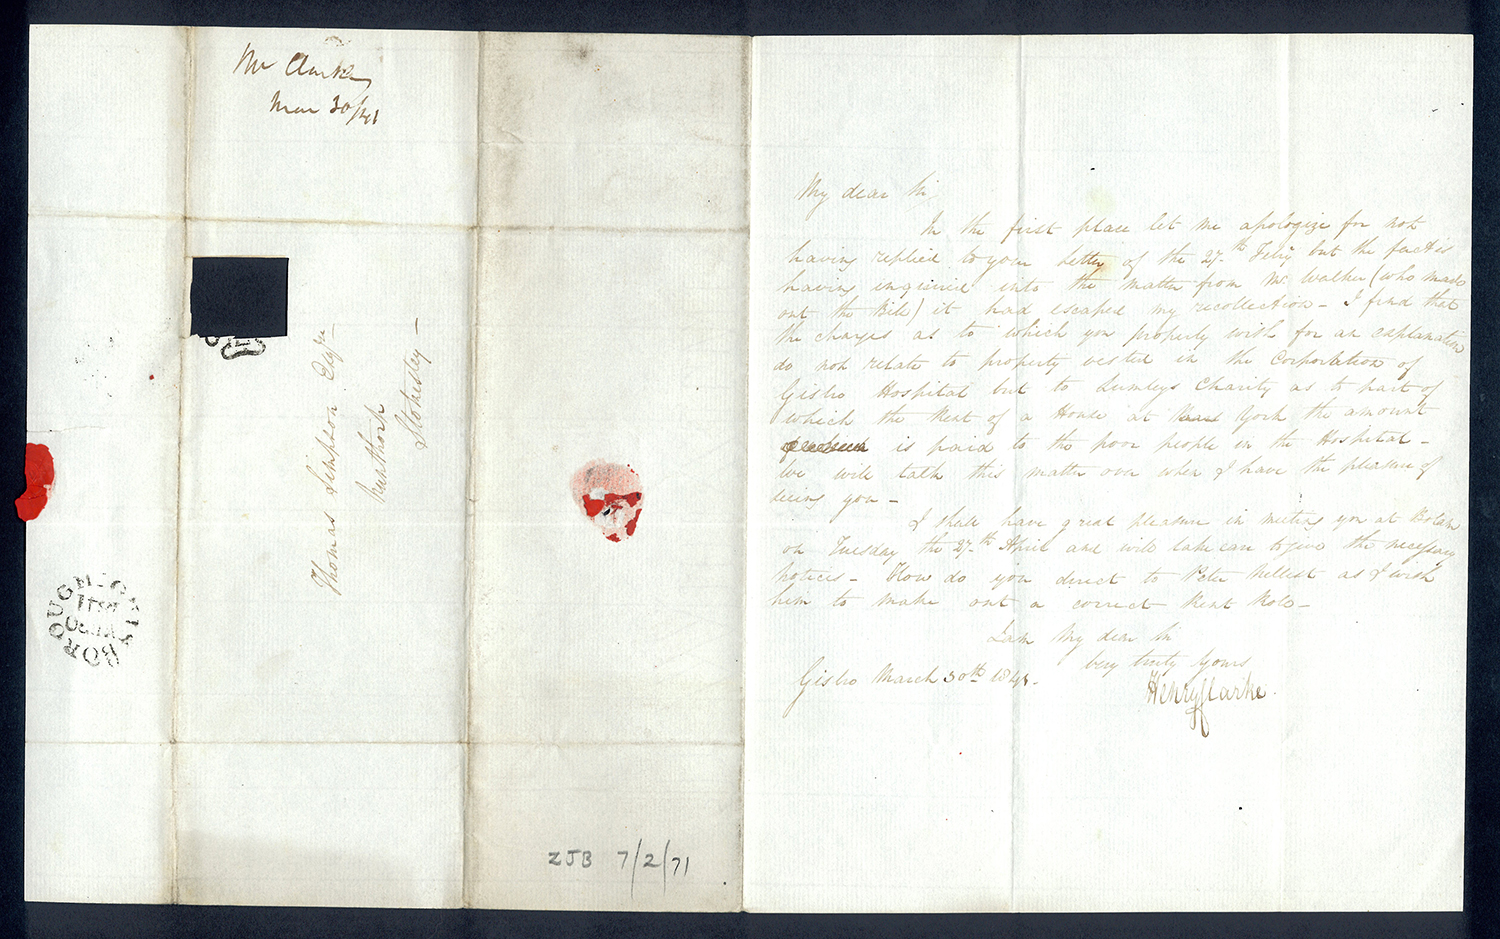 Mr Clarke
Mar 30/41
Thomas Simpson Esqre
Nunthorp
Stokesley
GUISBOROUGH
MR 30
1841
ZJB 7/2/71
My dear Sir,
In the first place let me apologize for not
having replied to your letter of the 27th Feby but the fact is
having inquired into the matter from Mr Walker (who made
out the Bill) it had escaped my recollection - I find that
the charges as to which you properly wish for an explanation
do not relate to property vested in the Corporation of
Gisbro Hospital but to Lumleys Charity as to part of
which the Rent of a House at York the amount
is paid to the poor people in the Hospital -
We will talk this matter over when I have the pleasure of
seeing you -
I shall have great pleasure in meeting you at Bolam
on Tuesday the 27th April and will take care to give the necessary
notices - How do you direct to Peter as I wish
him to make out a correct Rent Role -
I am My dear Sir
Very truly Yours
Henry Clarke
Gisbro March 30th 1841 -